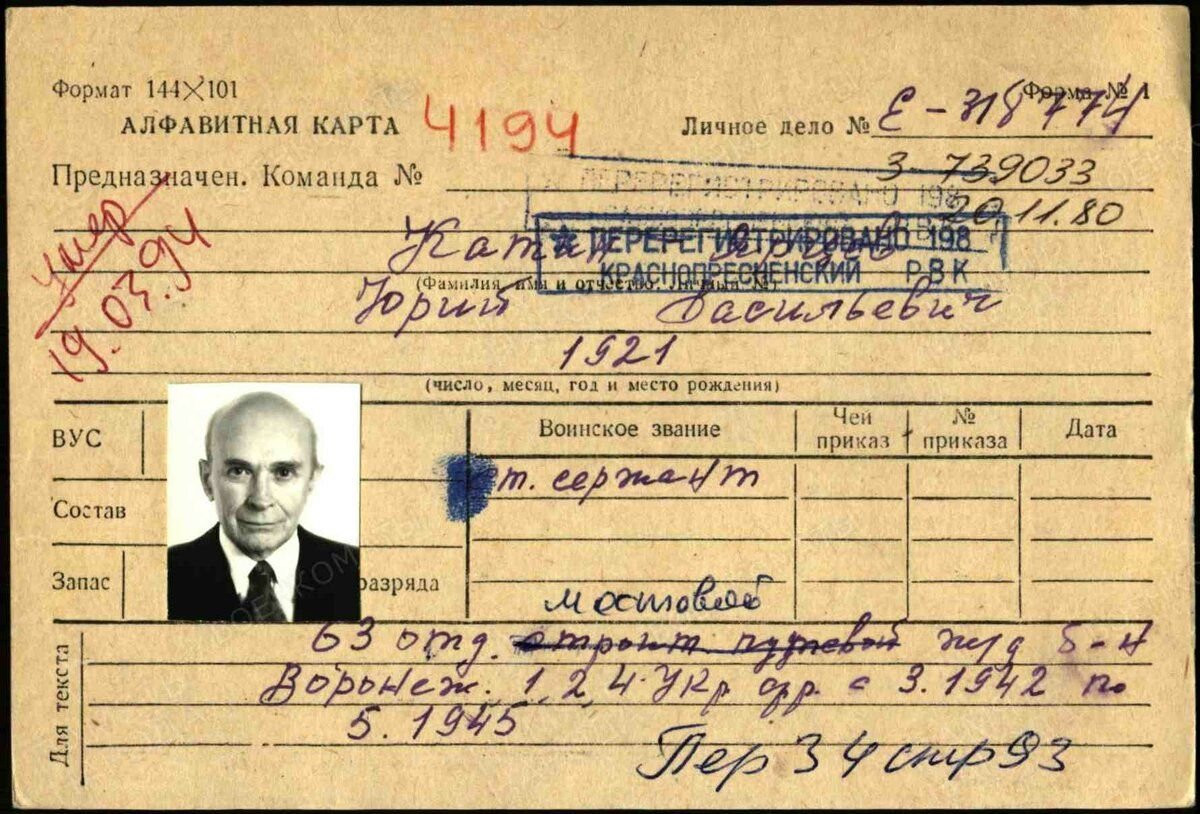 Формат 144×101
Форма № 1
АЛФАВИТНАЯ КАРТА 4194
Личное дело № Е-318774
Предназначен. Команда № З-739033
20.11.80
ПЕРЕРЕГИСТРИРОВАНО 198
Умер
19.03.94
Катин-Ярцев
ПЕРЕРЕГИСТРИРОВАНО 198
КРАСНОПРЕСНЕНСКИЙ РВК
(Фамилия, имя и отчество. Личный №)
Юрий Васильевич
1921
(число, месяц, год и место рождения)
ВУС
Воинское звание
Чей приказ
№ приказа
Дата
ст. сержант
Состав
Запас разряда
мостовой
Для текста
63 отд. строит. путевой ж/д б-н
Воронеж. 1, 2, 4 Укр фр. с 3.1942 по
5.1945
Пер 34 стр 93